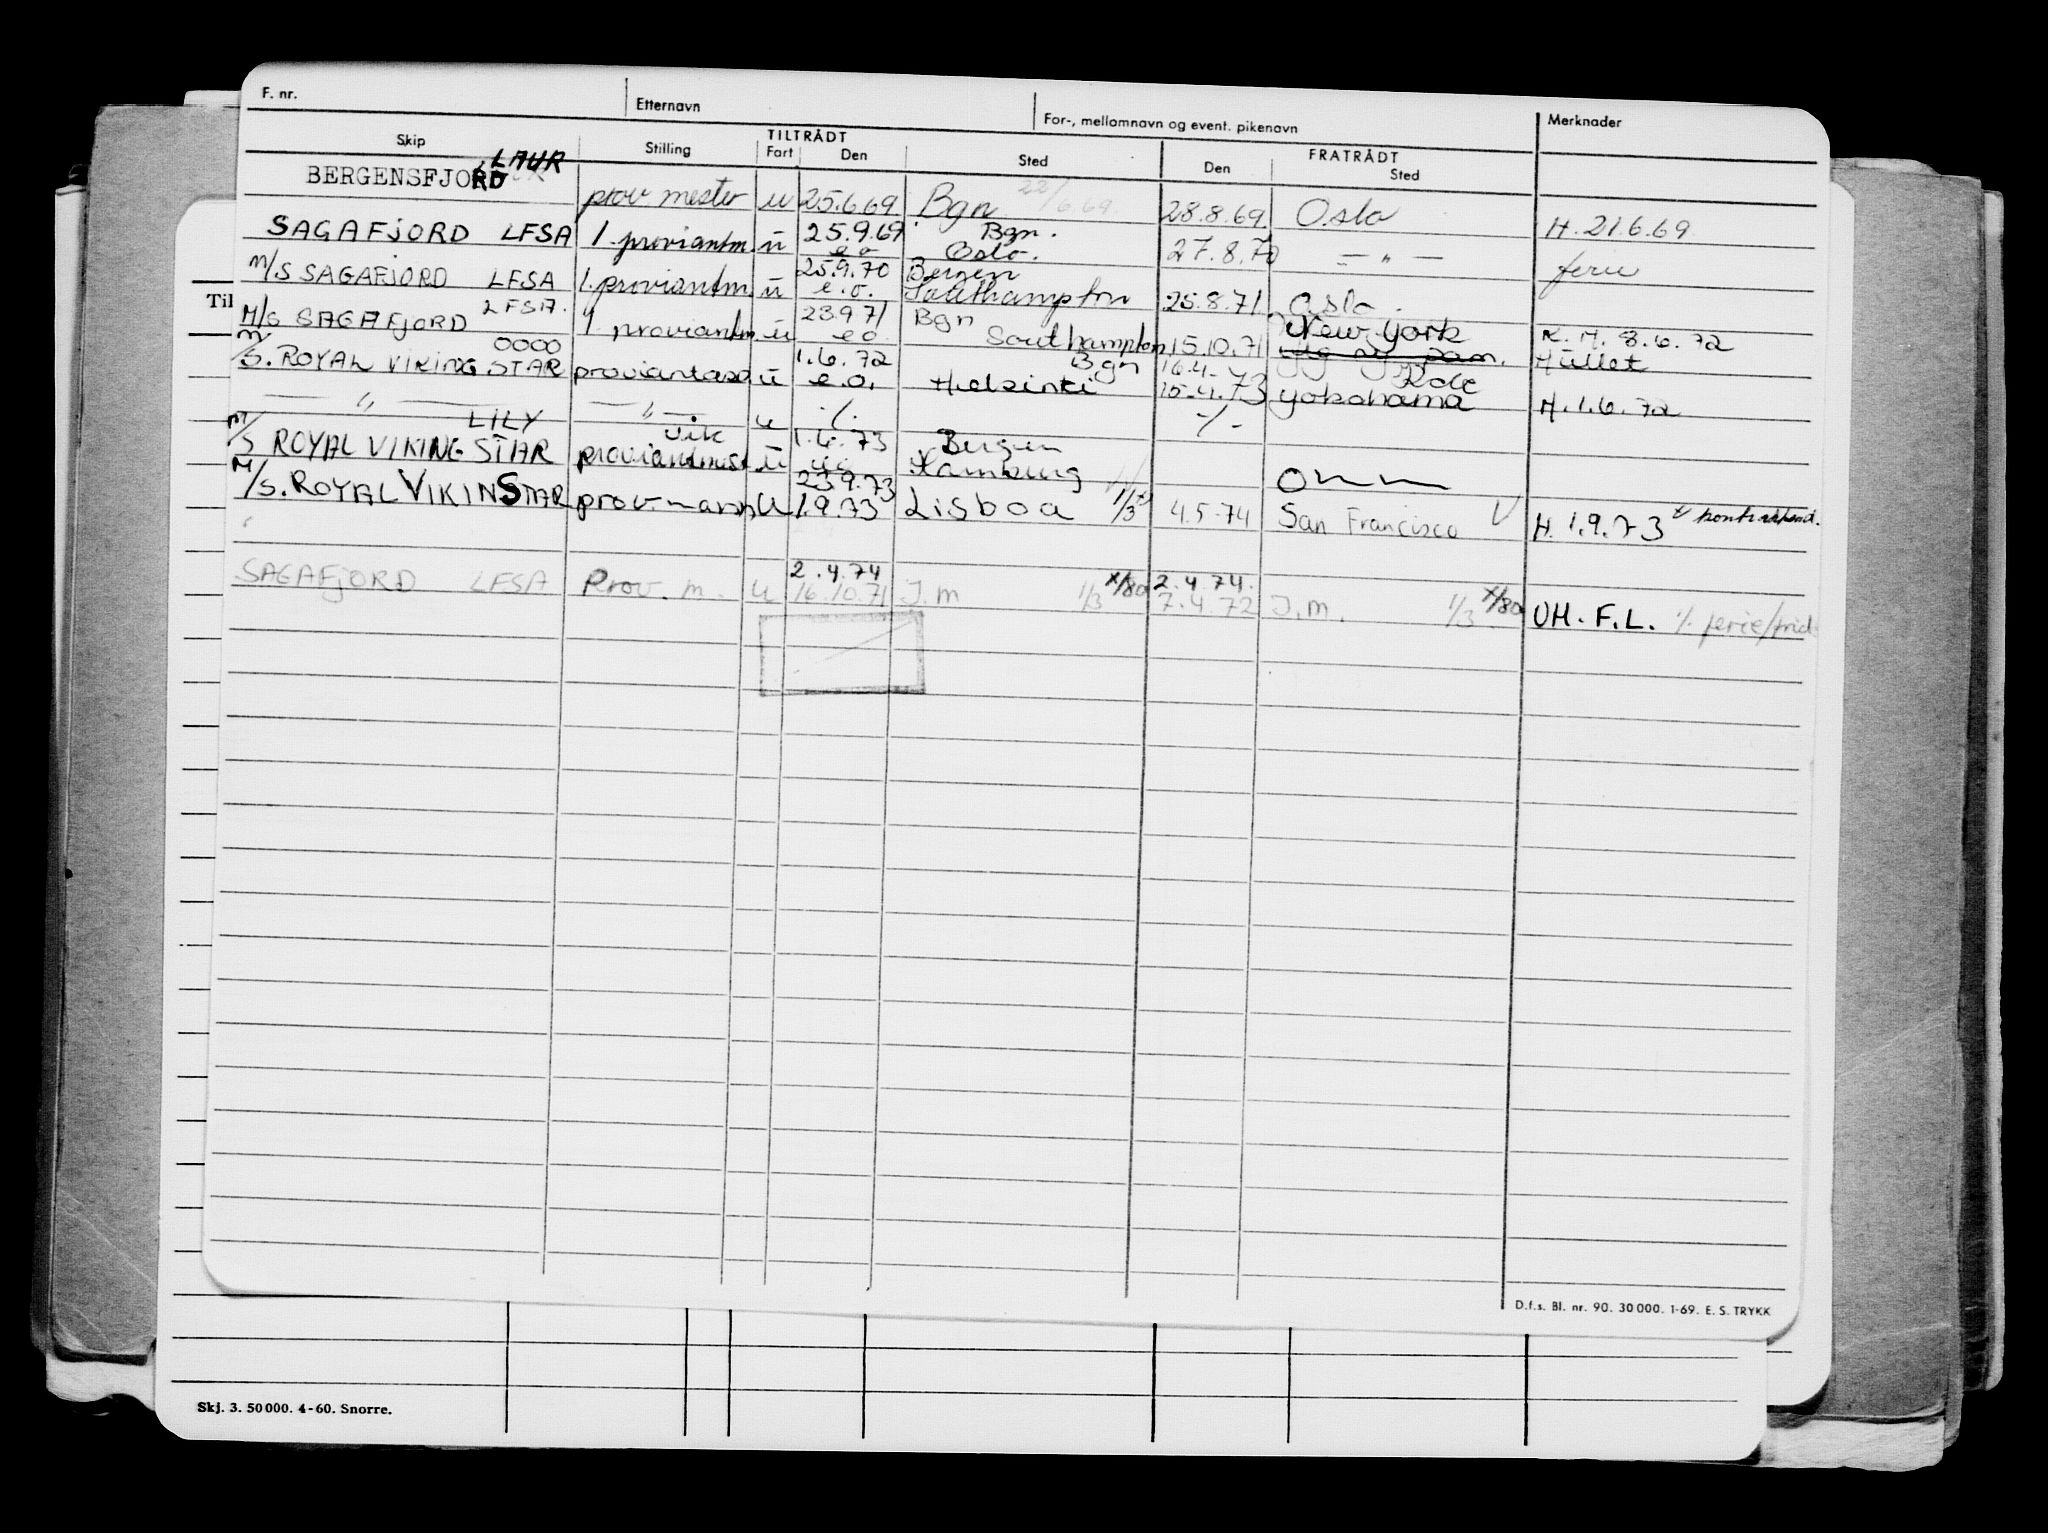 F. nr. Etternavn For-, mellomnavn og event. pikenavn Merknader
TILTRÅDT FRATRÅDT
Skip Stilling Fart Den Sted Den Sted
LAUR
BERGENSFJORD prov mester u 25.6.69 Bgn 22/6.69 28.8.69 Oslo H. 21.6.69
25.9.69 Bgn.
SAGAFJORD LFSA 1. proviantm. u e.o Oslo. 27.8.70 — " — ferie
25.9.70 Bergen
M/S SAGAFJORD LFSA 1. proviantm. u e.o. Southampton 25.8.71 Oslo.
LFSA. 23.9.71 Bgn New York K.H. 8.6.72
M/S SAGAFJORD 1. proviantm. u e.o. Southampton 15.10.71
OOOO 1.6.72 Bgn 16.4. Hullet
M/S. ROYAL VIKING STAR u e.o. Helsinki 15.4.73 Yokohama H. 1.6.72
— " — — " — u ./. ./-
LILY vik 1.6.73 Bergen
M/S ROYAL VIKING STAR proviantmest u Hamburg
23.9.73
M/S. ROYAL VIKINSTAR prov.mann u 1.9.73 Lisboa 1/3 4.5.74 San Francisco V H. 1.9.73
2.4.74 x/80 2.4.74. x/80
SAGAFJORD LFSA Prov. m. u 16.10.71 J.m 1/3 7.4.72 J.m. 1/3 UH. F.L. ./. ferie/frid.
Til
D.f.s. Bl. nr. 90. 30 000. 1-69. E. S. TRYKK
Skj. 3. 50 000. 4-60. Snorre.